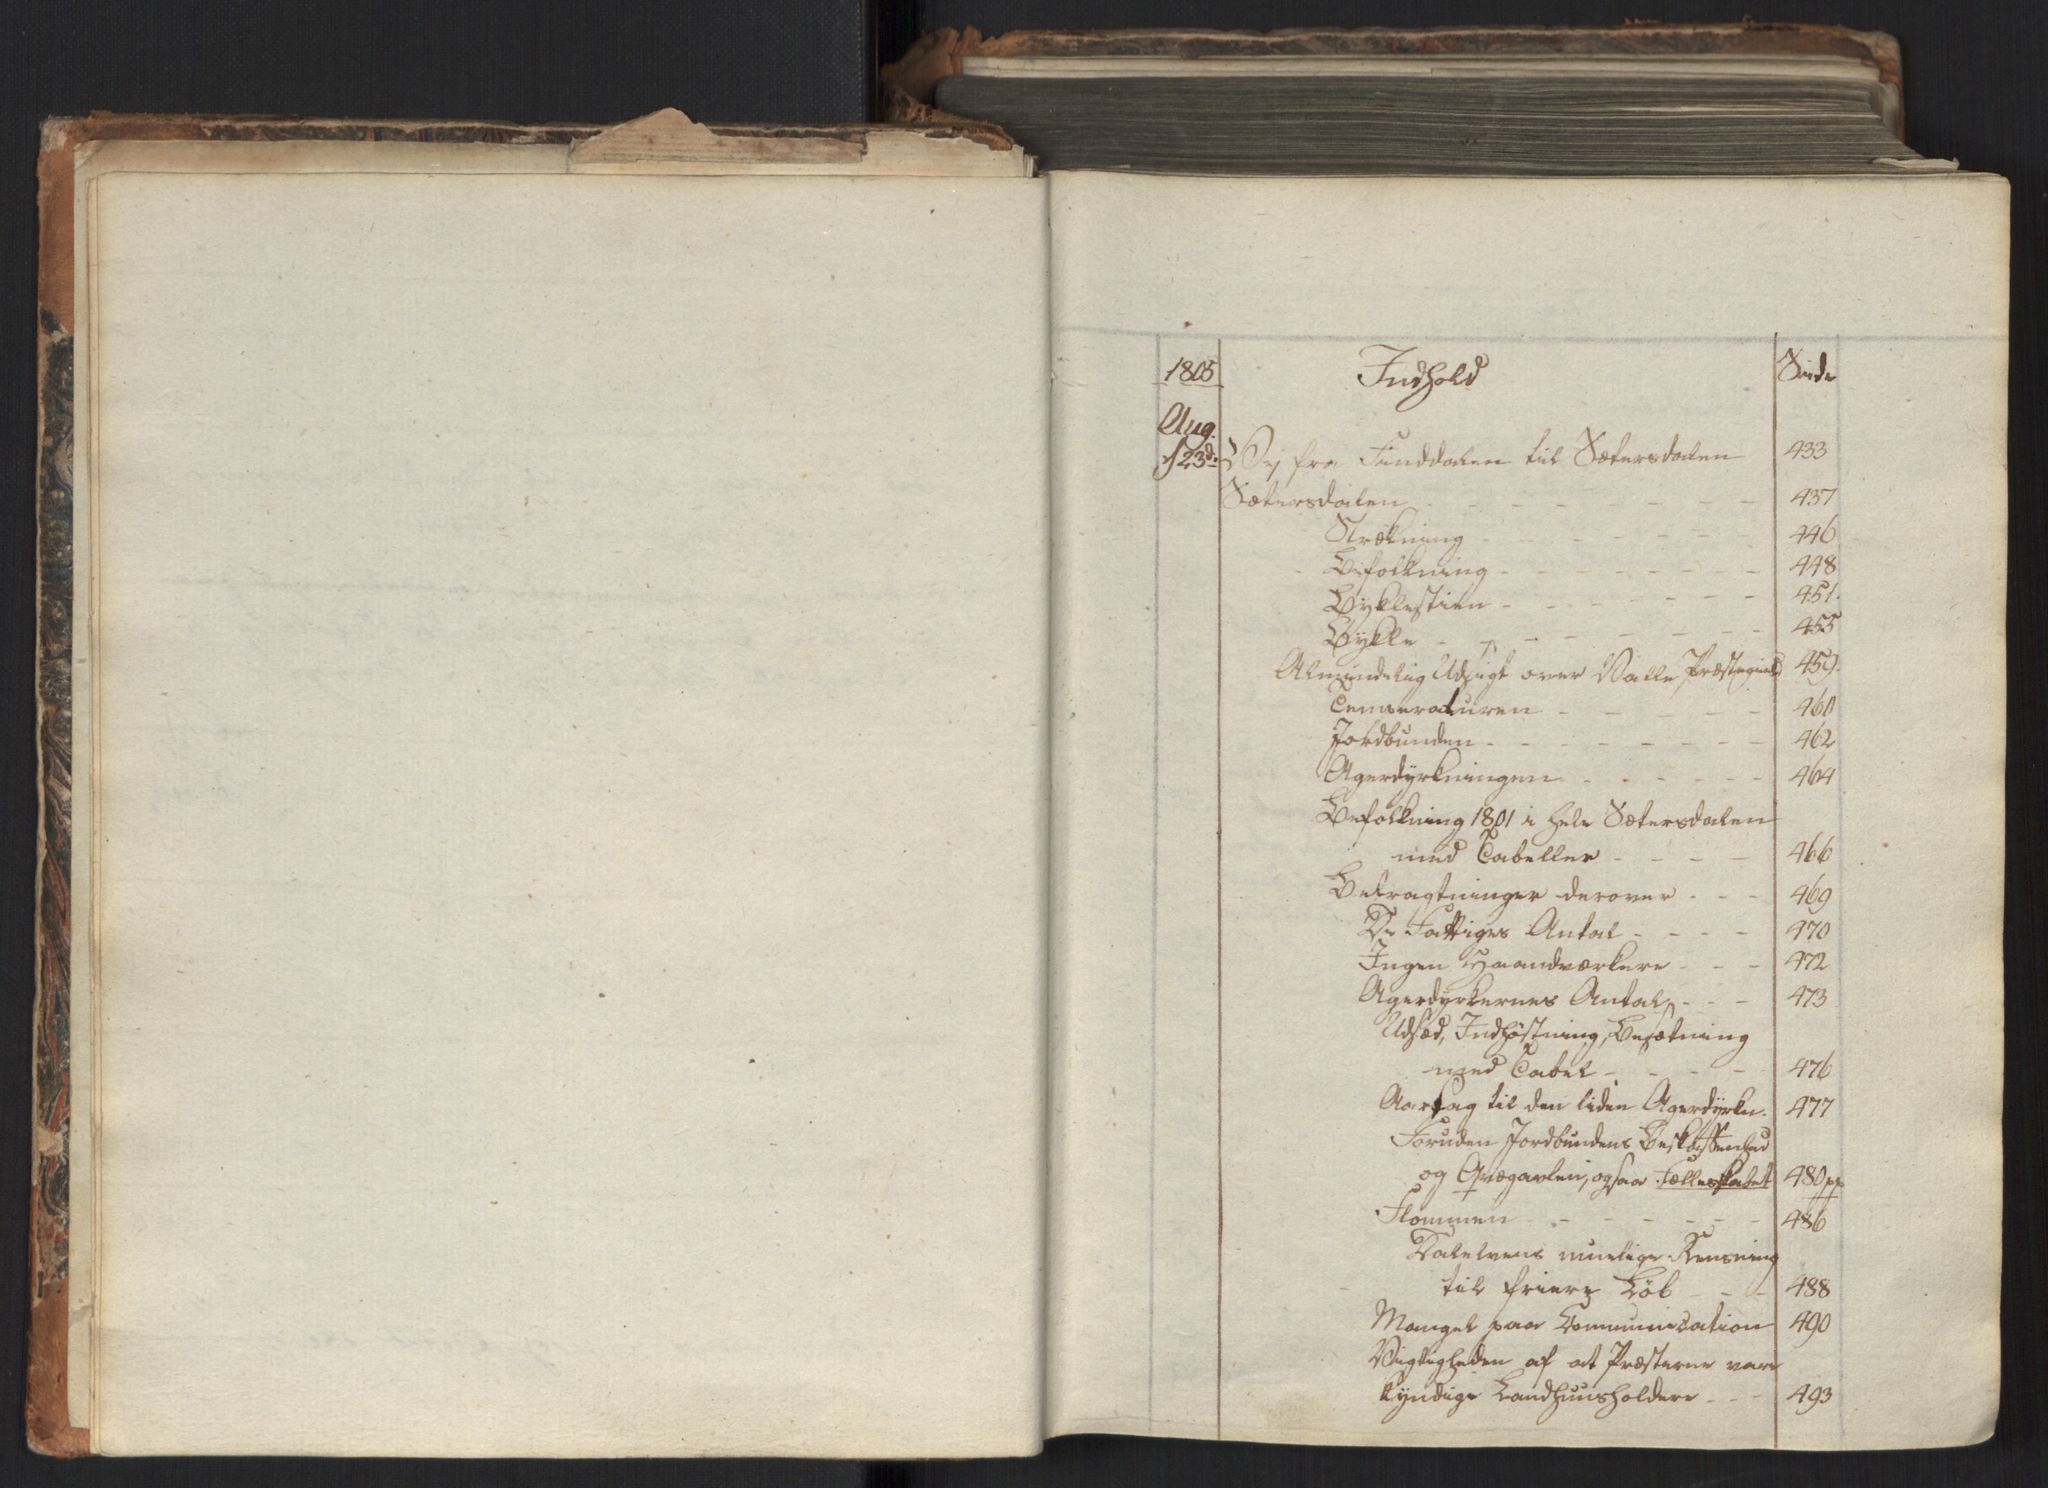 1805 Indhold Side
Aug.
d 23d. Vej fra Finddalen til Sætersdalen 433
Sætersdalen - - - - - - - 437
Strækning - - - - - - - 446
Befolkning - - - - - - - - 448
Byklestien - - - - - - - 451.
Bykle - - - - - - - - 455
Almindelig Udsigt over Valle Præstegield 459.
Temperaturen - - - - - 460
Jordbunden - - - - - - - - 462
Agerdyrkningen - - - - - 464
Befolkning 1801 i hele Sætersdalen
med Tabeller - - - - 466
Betragtninger derover - - - 469
De Fattiges Antal - - - - 470
Ingen Haandværkere - - - 472
Agerdyrkernes Antal, - - - 473
Udsæd, Indhöstning, Besætning
med Tabel - - - - - 476
Aarsag til den liden Agerdyrkn. 477
Foruden Jordbundens Beskaffenhed
og Qvægavlen, ogsaa Fællesskabet 480 pp
Flommen - - - - - - - 486
Dalelvens muelige Rensning
til friere Löb - - - 488
Mangel paa Communication 490
Vigtigheden af at Præsterne vare
kyndige Landhuusholdere - - - 493